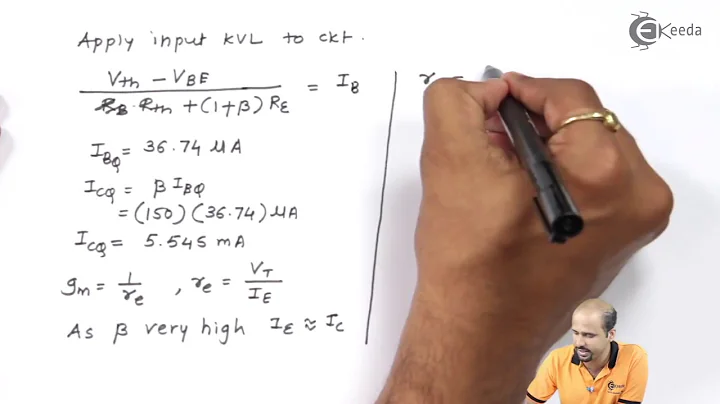 Apply input KVL to ckt.
(Vth - VBE) / (RB Rth + (1+β) RE) = IB
IBQ = 36.74 μA
ICQ = β IBQ
= (150) (36.74) μA
ICQ = 5.545 mA
gm = 1/re , re = VT/IE
As β very high IE ≈ IC
r =
Ekeeda